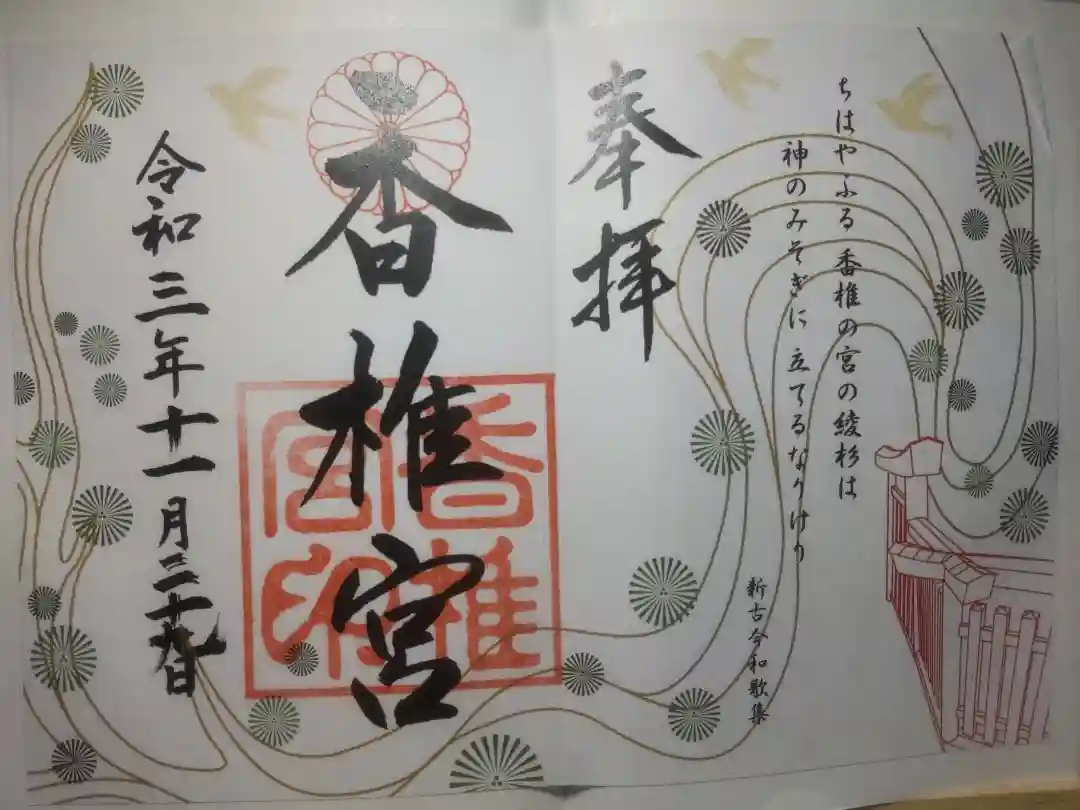 ちはやふる 香椎の宮の綾杉は
神のみそぎに 立てるなりけり
新古今和歌集
奉拝
香椎宮
香椎宮印
令和三年十一月二十九日